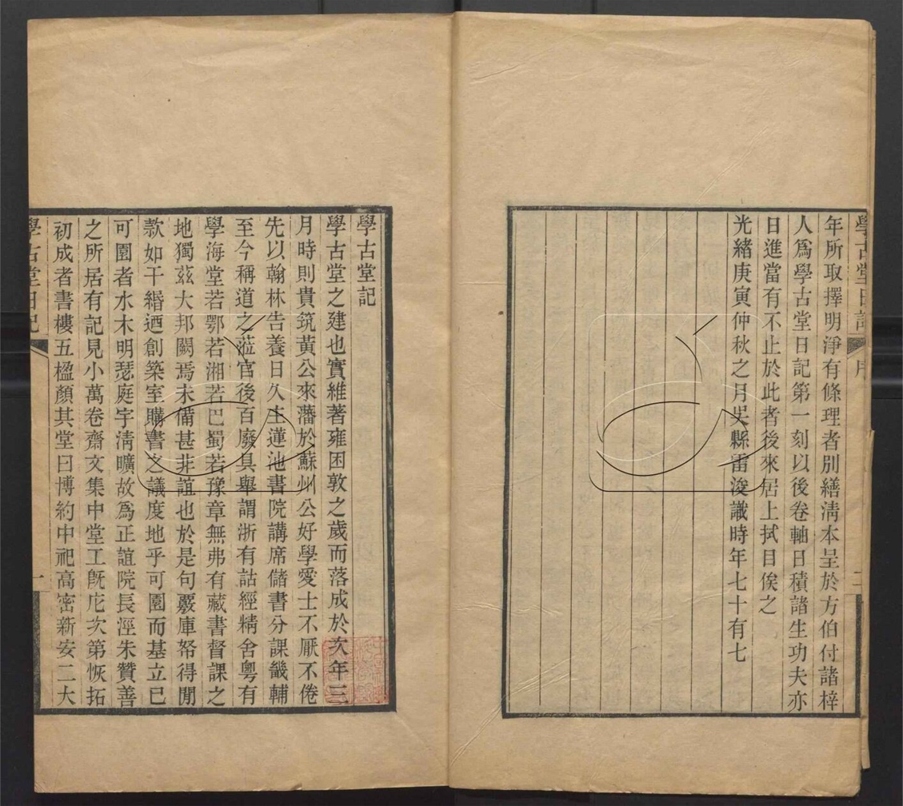 學古堂日記
序
二
年所取擇明淨有條理者別繕淸本呈於方伯付諸梓
人爲學古堂日記第一刻以後卷軸日積諸生功夫亦
日進當有不止於此者後來居上拭目俟之
光緒庚寅仲秋之月吳縣雷浚識時年七十有七
學古堂記
學古堂之建也實維著雍困敦之歲而落成於次年三
月時則貴筑黃公來藩於蘇州公好學愛士不厭不倦
先以翰林告養日久主蓮池書院講席儲書分課畿輔
至今稱道之蒞官後百廢具舉謂浙有詁經精舍粤有
學海堂若鄂若湘若巴蜀若豫章無弗有藏書督課之
地獨茲大邦闕焉未備甚非誼也於是句覈庫帑得閒
款如干緡迺創築室購書之議度地乎可園而基立巳
可園者水木明瑟庭宇淸曠故爲正誼院長涇朱贊善
之所居有記見小萬卷齋文集中堂工旣庀次第恢拓
初成者書樓五楹顏其堂曰博約中祀高密新安二大
學古堂日記
一